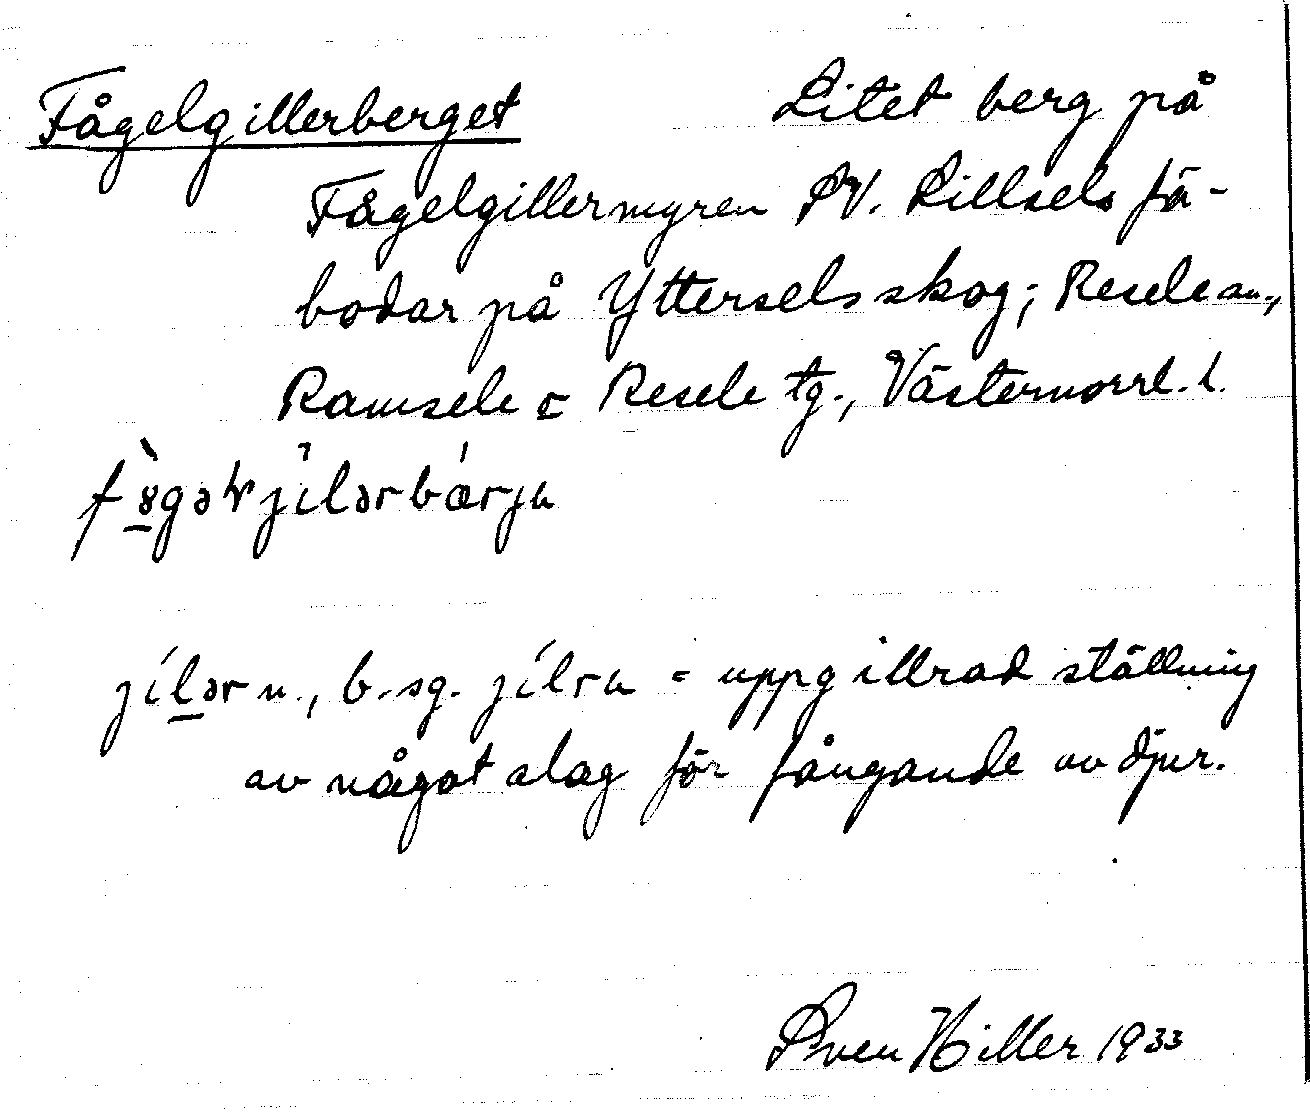 Fågelgillerberget Litet berg på
Fågelgillermyren SV. Lillsels fä-
bodar på Ytterselsskog; Resele sn.,
Ramsele o Resele tg., Västernorrl. l.
jílər n., b. sg. jílra = uppgillrad ställning
av något slag för fångande av djur.
Sven Hiller 1933